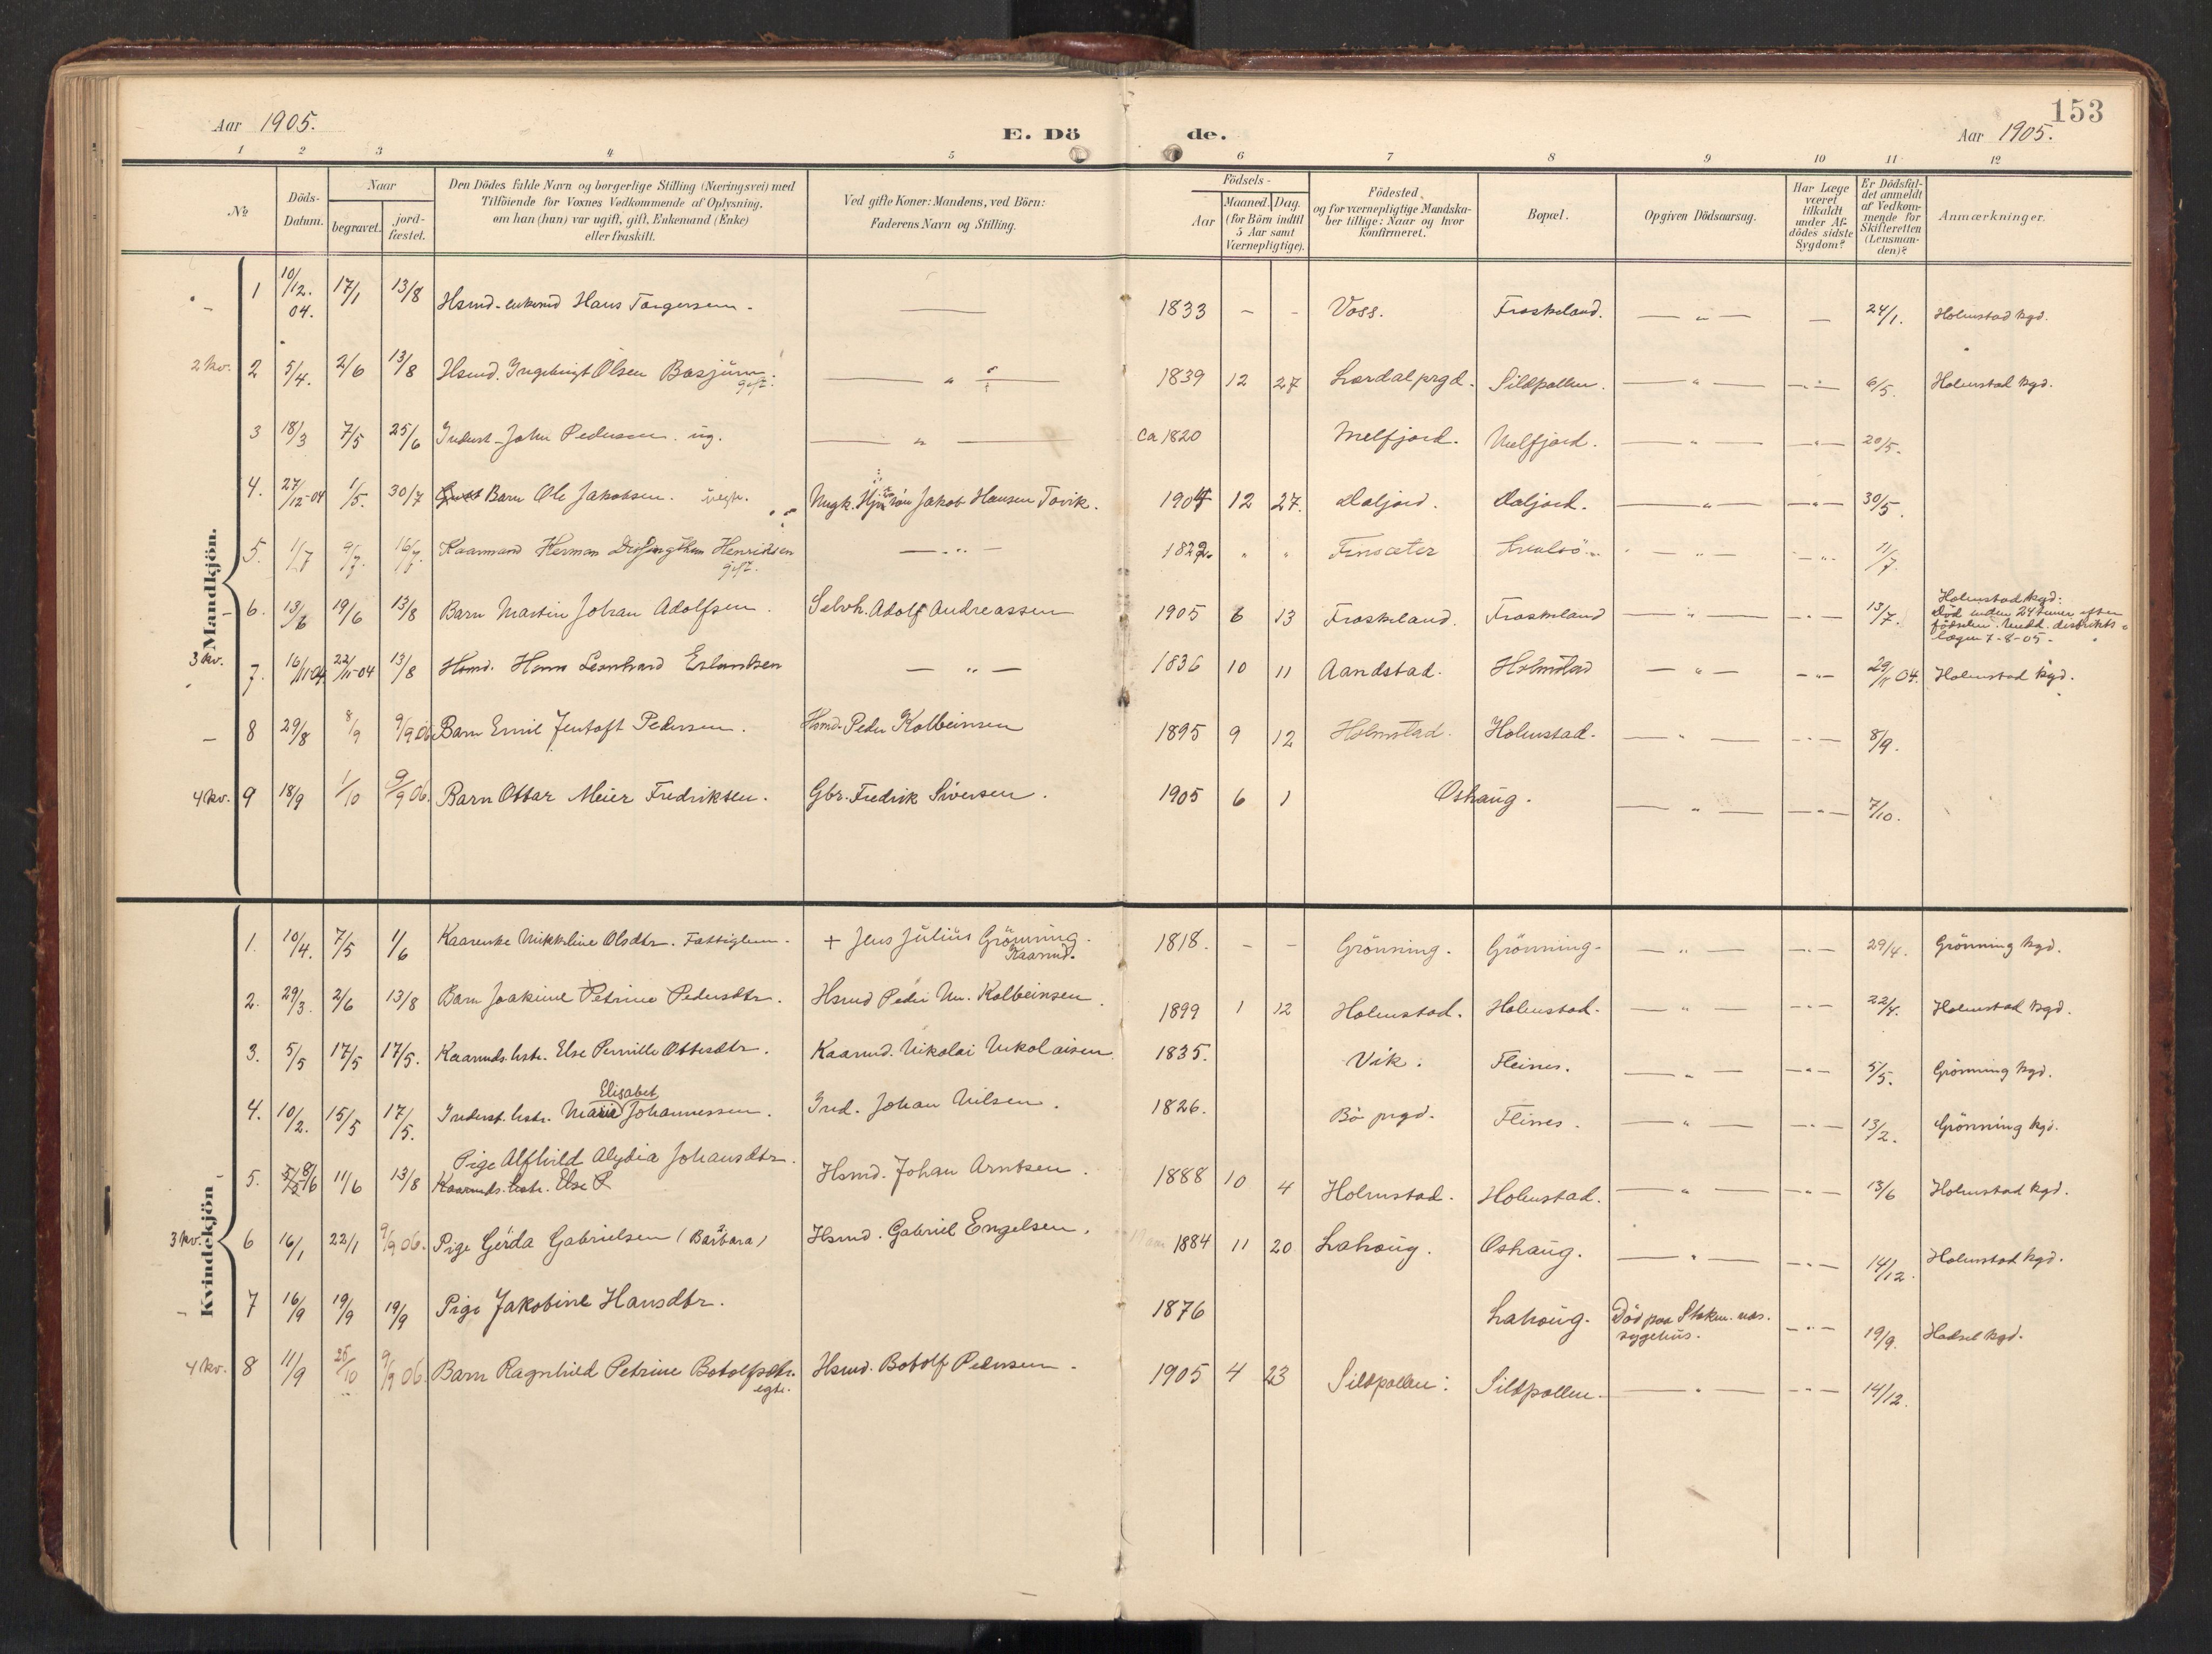 153
Aar 1905.
E. Dö de.
Aar 1905.
1 2 3 4 5 6 7 8 9 10 11 12
No
Döds-Datum.
Naar
begravet.
jord-fæstet.
Den Dödes fulde Navn og borgerlige Stilling (Næringsvei) med
Tilföiende for Voxnes Vedkommende af Oplysning,
om han (hun) var ugift, gift, Enkemand (Enke)
eller fraskilt.
Ved gifte Koner: Mandens, ved Börn:
Faderens Navn og Stilling.
Födsels-
Aar
Maaned. Dag.
(for Börn indtil
5 Aar samt
Værnepligtige).
Födested,
og for værnepligtige Mandska-
ber tillige: Naar og hvor
Konfirmeret.
Bopæl.
Opgiven Dödsaarsag.
Har Læge
været
tilkaldt
under Af-
dödes sidste
Sygdom?
Er Dödsfal-
det anmeldt
af Vedkom-
mende for
Skifteretten
(Lensman-
den)?
Anmærkninger.
Mandkjön.
1 10/12. 04. 17/1 13/8 Hsmd-enkemd Hans Torgersen. — 1833 - - Voss. Froskeland. — " — — 24/1. Holmstad kgd.
2 kv. 2 5/4. 2/6 13/8 Hsmd. Ingebrigt Olsen Bosjum. gift. — " — 1839 12 27 Lærdal prgd. Sildpollen. — " — — " — 6/5. Holmstad kgd.
3 18/3 7/5 25/6 Inderst John Pedersen. ug. — " — Ca 1820 Melfjord. Melfjord. — " — — " — 20/5.
4. 27/12-04 1/5. 30/7 Barn Ole Jakobsen. Ungk. Jakob Hansen Tovik. 1904 12 27. Daljord. Daljord. — " — — " — 30/5.
5. 1/7 9/7. 16/7. Kaarmand Herman Henriksen gift. — " — 1822. " " Finsæter — " — — " — 11/7.
6. 13/6 19/6 13/8 Barn Martin Johan Adolfsen. Selvh. Adolf Andreassen 1905 6 13 Froskeland. Froskeland — " — — " — 13/7. Holmstad kgd.
Död inden 24 timer efter
födselen. Medd. distrikts
lægen 7-8-05-
3 kv. 7. 16/11-04. 22/11-04 13/8 Hsmd. Hans Leonhard Erlandsen — " — 1836 10 11 Aandstad. Holmstad — " — — " — 29/11 04. Holmstad kgd.
8 29/8 8/9 9/9 06 Barn Emil Jentoft Pedersen. Hsmd. Peder Kolbeinsen 1895 9 12 Holmstad. Holmstad. — " — — " — 8/9.
4 kv. 9 18/9 1/10 9/9 06. Barn Ottar Meier Fredriksen. Gbr. Fredrik Siversen. 1905 6 1 Oshaug. — " — — " — 7/10.
Kvindekjön
1. 10/4. 7/5 1/6 Kaarenke Nikkeline Olsdtr. Fattiglem. + Jens Julius Grönning. Kaarmd. 1818. - - Grönning. Grönning. — " — — " — 29/4. Grönning kgd.
2. 29/3. 2/6 13/8 Barn Joakime Petrine Pedersdtr. Hsmd Peder Kolbeinsen. 1899 1 12 Holmstad. Holmstad. — " — — " — 22/4. Holmstad kgd.
3. 5/5 17/5 17/5. Kaarmds. hstr. Else Pernille Ottesdtr. Kaarmd. Nikolai Nikolaisen. 1835. Vik. Fleines. — " — — " — 5/5. Grönning kgd.
4. 10/2. 15/5 17/5. Inderst. hstr. Maria Elisabet Johannessen. Ind. Johan Nilsen. 1826. Bö prgd. Fleines. — " — — " — 13/2. Grönning kgd.
5. 5/5 8/6 11/6 13/8 Pige Alfhild Alydia Johansdtr.
Kaarmds. hstr. Else P Hsmd. Johan Arntsen. 1888 10 4 Holmstad. Holmstad. — " — — " — 13/6 Holmstad kgd.
3 kv. 6 16/1 22/1 9/9 06. Pige Gerda Gabrielsen (Barbara) Hsmd. Gabriel Engelsen. 1884 11 20 Lahaug. Oshaug. — " — — " — 14/12. Holmstad kgd.
7 16/9 19/9 19/9 Pige Jakobine Hansdtr. 1876 Lahaug. Död paa Stokm. næs. sygehus. — " — 19/9. Hadsel kgd.
4 kv. 8 11/9 25/10 9/9 06. Barn Ragnhild Petrine Botolfsdtr. egte. Hsmd. Botolf Pedersen. 1905 4 23 Sildpollen. Sildpollen. — " — — " — 14/12.